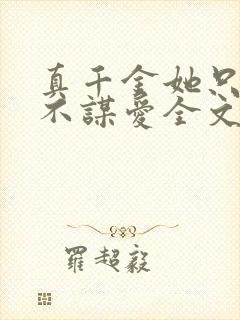 真千金她只
不謀愛全文
羅超毅